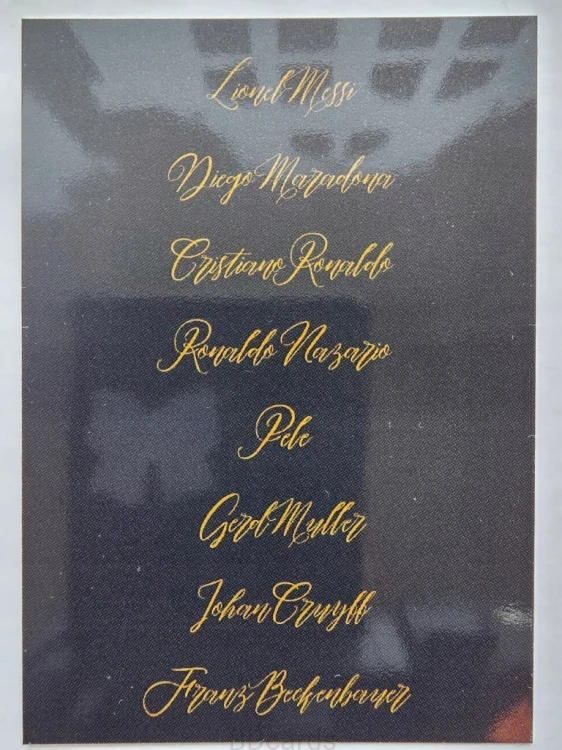 Lionel Messi
Diego Maradona
Cristiano Ronaldo
Ronaldo Nazario
Pele
Gerd Muller
Johan Cruyff
Franz Beckenbauer
BDcards